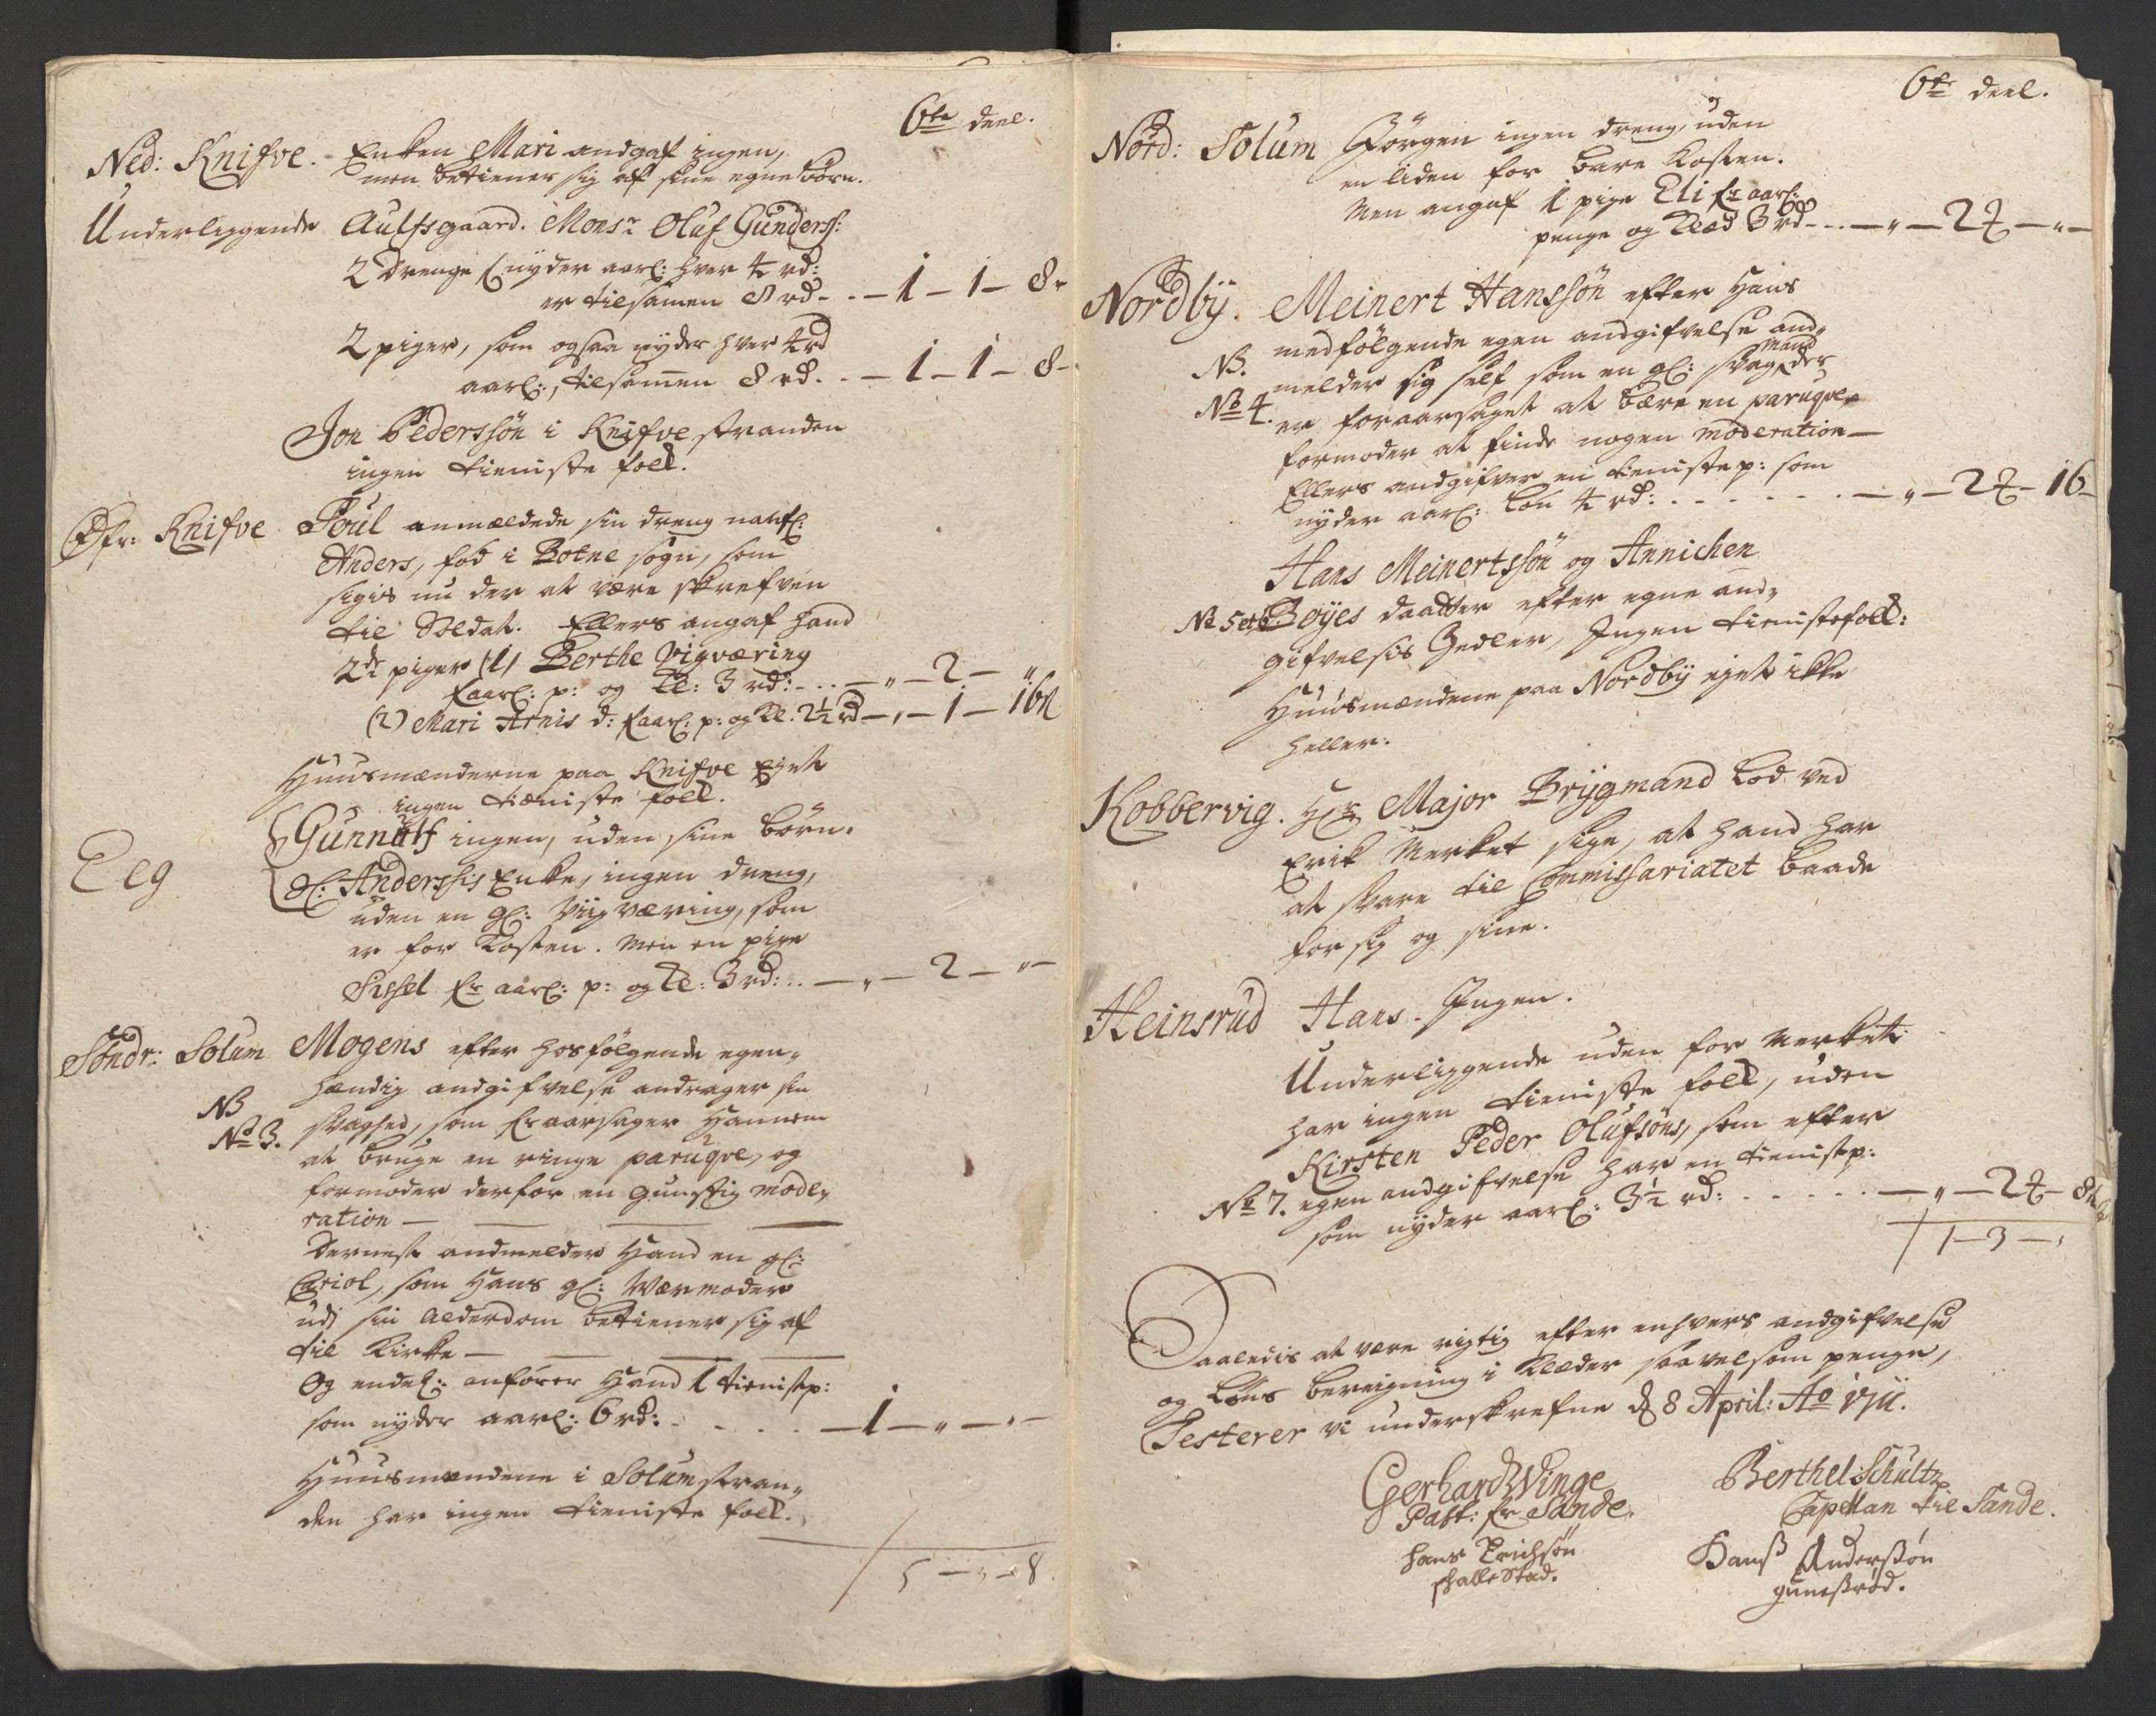 6te deel.
Ned: Knifve. Enken Mari andgaf ingen,
men betiener sig af sine egne börn.
Underliggende Aulfsgaard. Monsr Oluf Gunderss:
2 drenge nyder aarl: hver 4 rd:
er tilsamen 8 rd - - 1 - 1 - 8 -
2 piger, som ogsaa nyder hver 4 rd
aarl:, tilsamen 8 rd. - - 1 - 1 - 8 -
Jon Pederssön i Knifve stranden
ingen tieniste folk.
Öfr: Knifve Poul anmældede sin dreng nafnl:
Anders, föd i Botne sogn, som
sigis nu der at være skrefven
til Soldat. Ellers angaf hand
2de piger (1) Berthe Vigværing
faar aarl: p: og kl: 3 rd: - - - „ - 2 - „
(2) Mari Arnis d: faar aarl: p: og kl. 2½ rd - „ - 1 - 16
Huusmænderne paa Knifve Ejet
ingen tieniste folk.
Eeg Gunnulf ingen, uden sine börn.
Sl: Anderssis Enke, ingen dreng,
uden en gl: Viigværing, som
er for kosten. Men en pige
Sissel for aarl: p: og kl: 3 rd: - - „ - 2 - „ -
Söndr: Solum Mogens efter hosfölgende egen„
hændig andgifvelse andrager sin
NB
No 3. svaghed, som foraarsager hannem
at bruge en ringe paruqve, og
formoder derfor en gunstig mode„
ration —
Dernest andmelder hand en gl:
Cariol, som hans gl: Værmoder
udi sin alderdom betiener sig af
til kirke —
Og endel: anförer hand 1 tienistep:
som nyder aarl: 6 rd: - - - 1 - „ - „ -
Huusmændene i Solumstran„
den har ingen tieniste folk.
5 - „ - 8
6te deel.
Nord: Solum Jörgen ingen dreng, uden
en liden for bare kosten.
Men angaf 1 pige Eli for aarl:
penge og klæd 3 rd - - - „ - 2 - „ -
Nordby. Meinert Hanssön efter hans
medfölgende egen andgifvelse and„
NB.
melder sig self som en gl: svag mand der
No 4. er foraarsaget at bære en paruqve
formoder at finde nogen moderation —
Ellers andgifver en tienistep: som
nyder aarl: lön 4 rd: - - - - „ - 2 - 16 -
Hans Meinertssön og Annichen
No 5 et 6 Böyes daatter efter egne and„
gifvelsis Zedler, Ingen tienistefolk:
Huusmændene paa Nordby ejet ikke
heller.
Kobbervig. Hr Major Brygmand lod ved
Erik Merket sige, at hand har
at svare til Commissariatet baade
for sig og sine.
Heinsrud Hans. Ingen.
Underliggende uden for Merket
har ingen tieniste folk, uden
Kirsten Peder Olufsöns, som efter
No 7. egen andgifvelse har en tienistep:
som nyder aarl: 3½ rd: - - - - „ - 2 - 8
1 - 3 - „
Saaledis at være rigtig efter enhvers andgifvelse
og löns bereigning i klæder saavelsom penge,
Testerer vi underskrefne d 8 April: Ao 1711.
Gerhard Winge
Past: for Sande.
Berthel: Schultz
Capellan til Sande.
Hans Erichsön
Skallestad.
Hanss Anderssön
gunessröd.